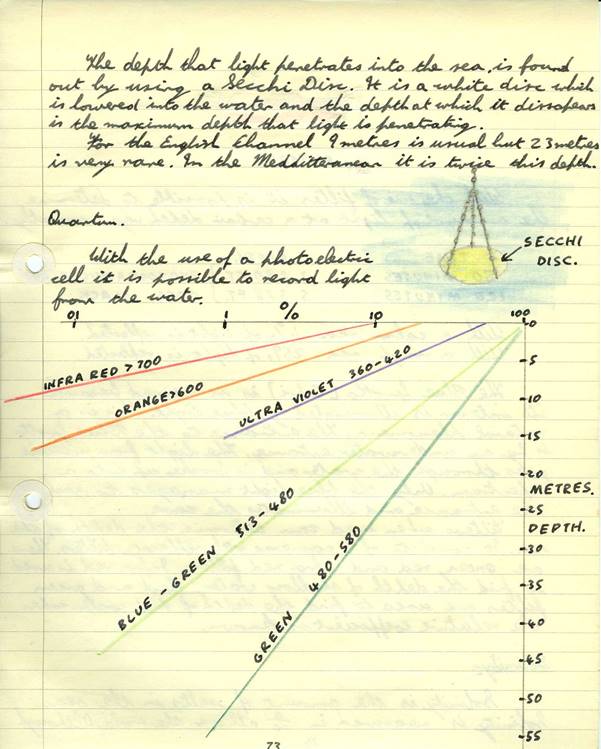 The depth that light penetrates into the sea, is found
out by using a Secchi Disc. It is a white disc which
is lowered into the water and the depth at which it dissapears
is the maximum depth that light is penetrating.
For the English Channel 9 metres is usual but 23 metres
is very rare. In the Medditteranean it is twice this depth.
Quantum.
SECCHI
DISC.
With the use of a photoelectric
cell it is possible to record light
from the water.
01 1 % 10 100
0
5
INFRA RED > 700
ORANGE > 600
ULTRA VIOLET 360-420
10
15
20
METRES.
25
DEPTH.
BLUE - GREEN 513-480
GREEN 480-580
30
35
40
45
50
55
73